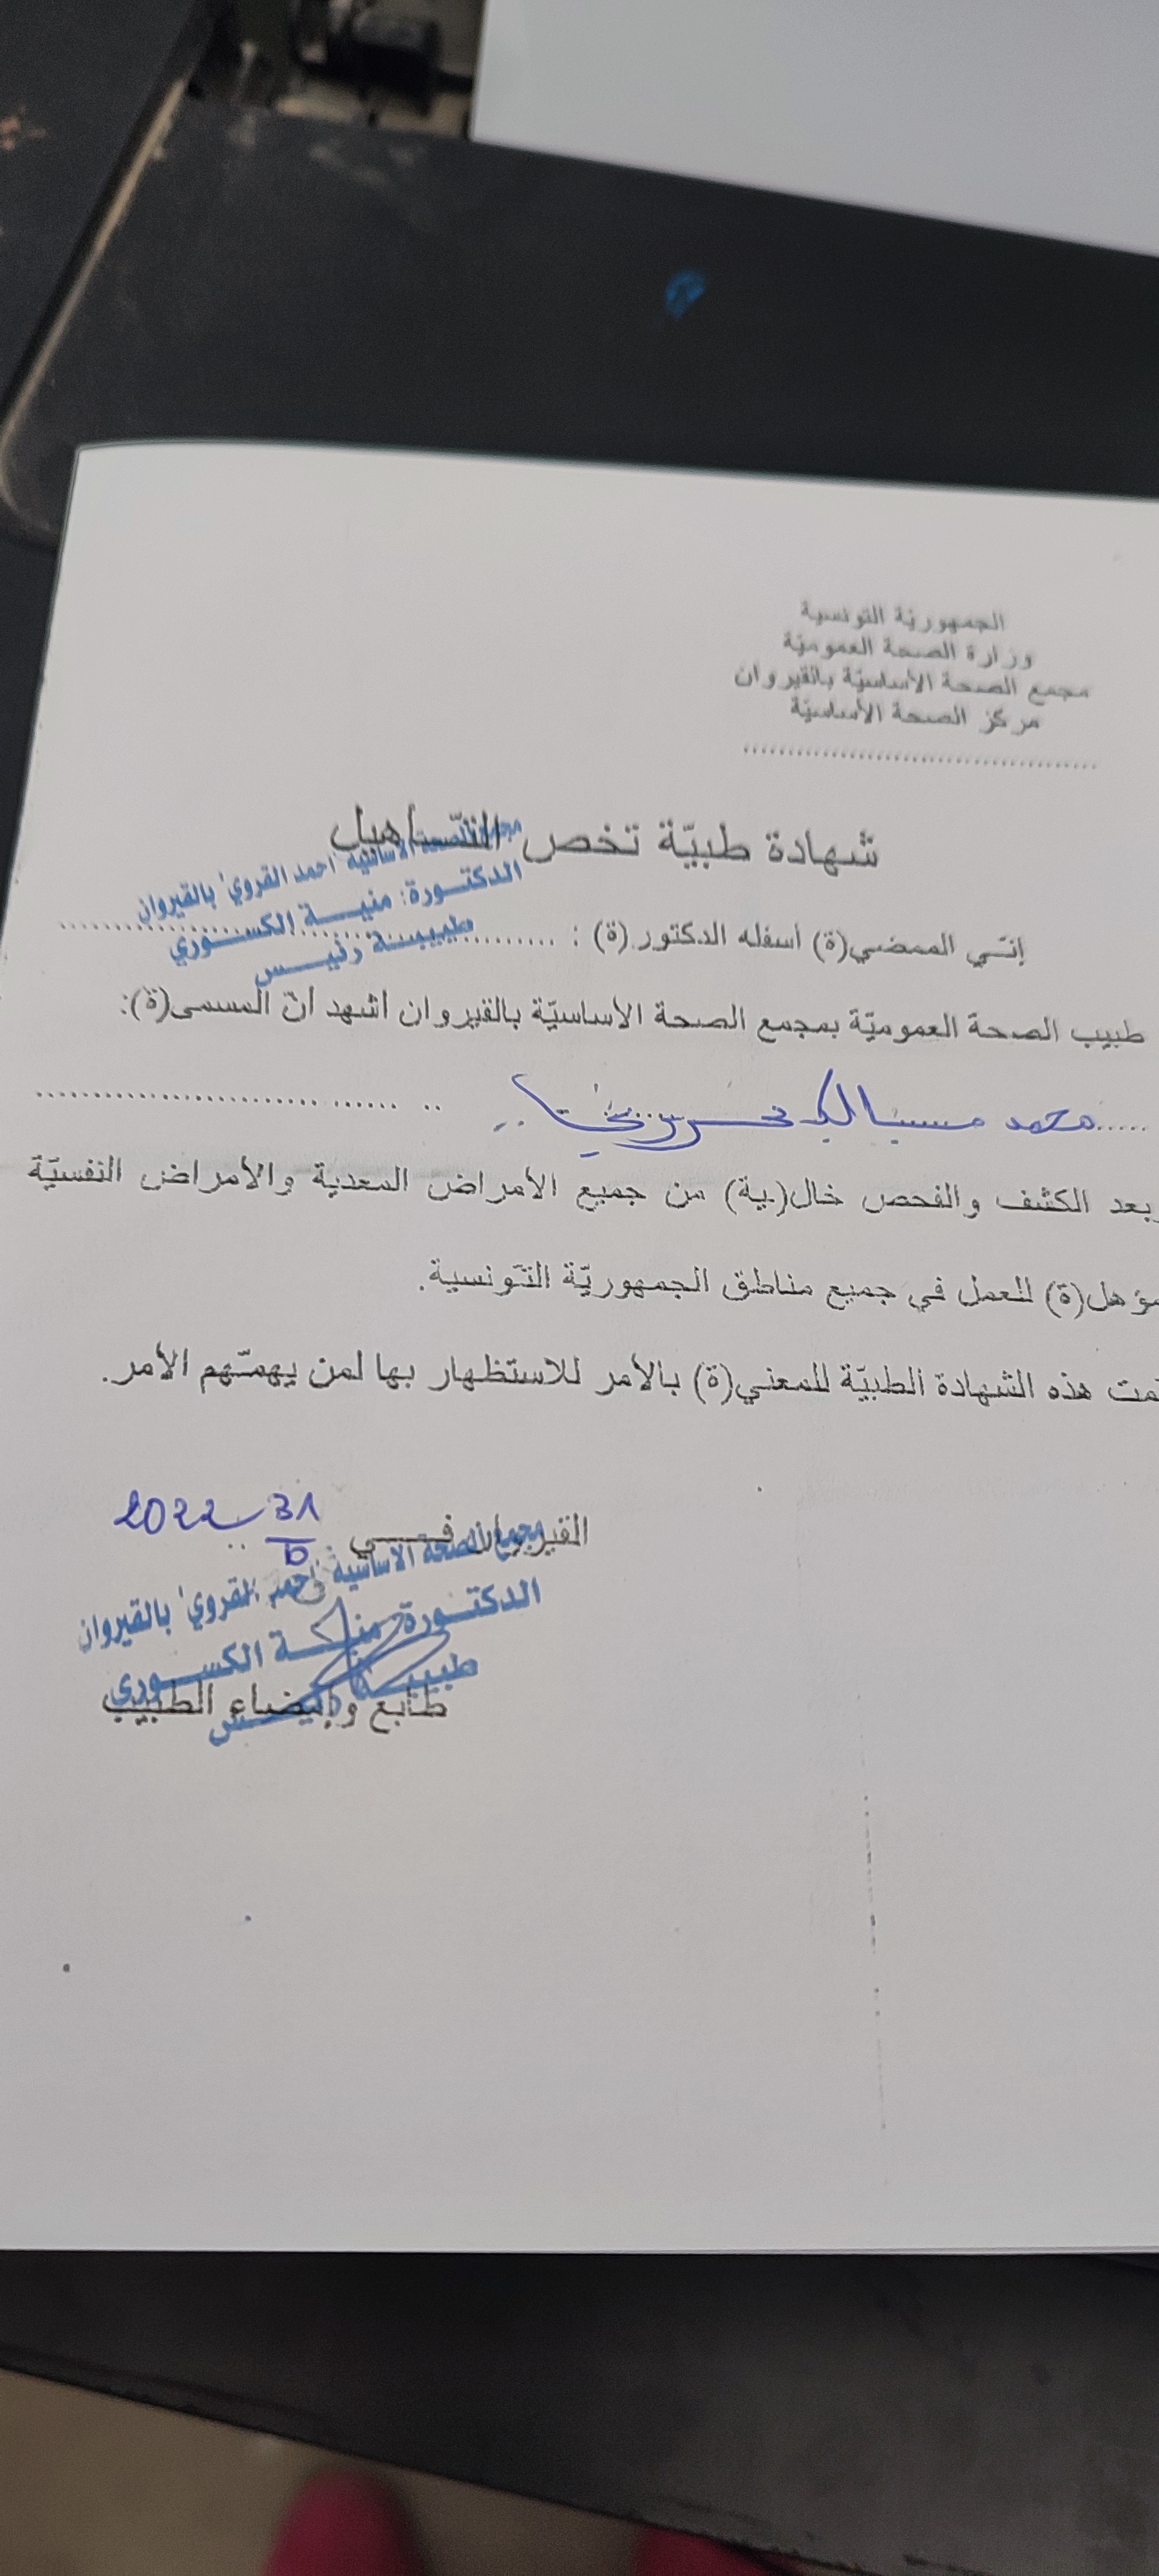 الجمهوريّة التونسية
وزارة الصحة العموميّة
مجمع الصحة الأساسيّة بالقيروان
مركز الصحة الأساسيّة
شهادة طبيّة تخص
مجمع الصحة الأساسية "أحمد القروي" بالقيروان
الدكتورة: منية الكسوري
طبيبة رئيس
إنّي الممضي(ة) أسفله الدكتور(ة) :
طبيب الصحة العموميّة بمجمع الصحة الأساسيّة بالقيروان أشهد أنّ المسمى(ة):
محمد
بعد الكشف والفحص خال(ية) من جميع الأمراض المعدية والأمراض النفسيّة
مؤهل(ة) للعمل في جميع مناطق الجمهوريّة التّونسية.
هذه الشهادة الطبيّة للمعني(ة) بالأمر للاستظهار بها لمن يهمّهم الأمر.
القيروان في 31 2022
مجمع الصحة الأساسية "أحمد القروي" بالقيروان
الدكتورة منية الكسوري
طبيبة رئيس
طابع وإمضاء الطبيب